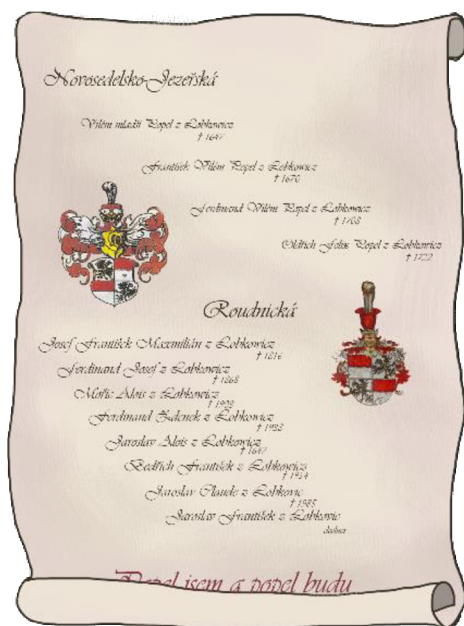 Novosedelsko-Jezeřská
Vilém mladší Popel z Lobkowicz
† 1647
František Vilém Popel z Lobkowicz
† 1670
Ferdinand Vilém Popel z Lobkowicz
† 1708
Oldřich Felix Popel z Lobkowicz
† 1722
Roudnická
Josef František Maxmilián z Lobkowicz
† 1816
Ferdinand Josef z Lobkowicz
† 1868
Mořic Alois z Lobkowicz
Ferdinand Zdenek z Lobkowicz
Jaroslav Alois z Lobkowicz
† 1647
Bedřich František z Lobkowicz
Jaroslav Claude z Lobkowic
† 1985
Jaroslav František z Lobkowic
Popel jsem a popel budu